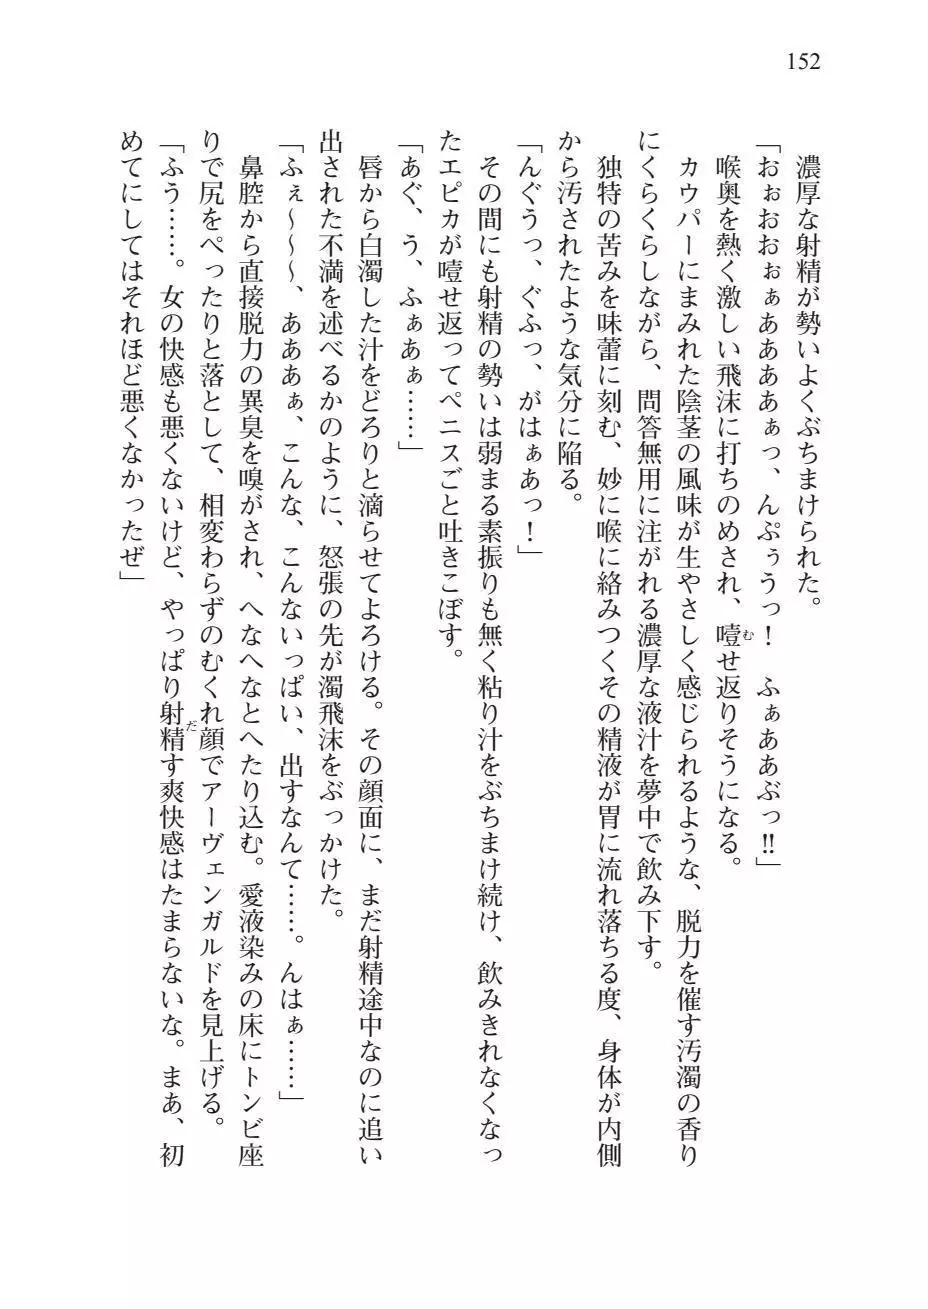 152
濃厚な射精が勢いよくぶちまけられた。
「おぉおおぉぁああああぁっ、んぷぅうっ！　ふぁああぶっ!!」
喉奥を熱く激しい飛沫に打ちのめされ、噎せ返りそうになる。
カウパーにまみれた陰茎の風味が生やさしく感じられるような、脱力を催す汚濁の香り
にくらくらしながら、問答無用に注がれる濃厚な液汁を夢中で飲み下す。
独特の苦みを味蕾に刻む、妙に喉に絡みつくその精液が胃に流れ落ちる度、身体が内側
から汚されたような気分に陥る。
「んぐうっ、ぐふっ、がはぁあっ！」
その間にも射精の勢いは弱まる素振りも無く粘り汁をぶちまけ続け、飲みきれなくなっ
たエピカが噎せ返ってペニスごと吐きこぼす。
「あぐ、う、ふぁあぁ……」
唇から白濁した汁をどろりと滴らせてよろける。その顔面に、まだ射精途中なのに追い
出された不満を述べるかのように、怒張の先が濁飛沫をぶっかけた。
「ふぇ～～～、あああぁ、こんな、こんないっぱい、出すなんて……。んはぁ……」
鼻腔から直接脱力の異臭を嗅がされ、へなへなとへたり込む。愛液染みの床にトンビ座
りで尻をぺったりと落として、相変わらずのむくれ顔でアーヴェンガルドを見上げる。
「ふう……。女の快感も悪くないけど、やっぱり射精す爽快感はたまらないな。まあ、初
めてにしてはそれほど悪くなかったぜ」
む
だ